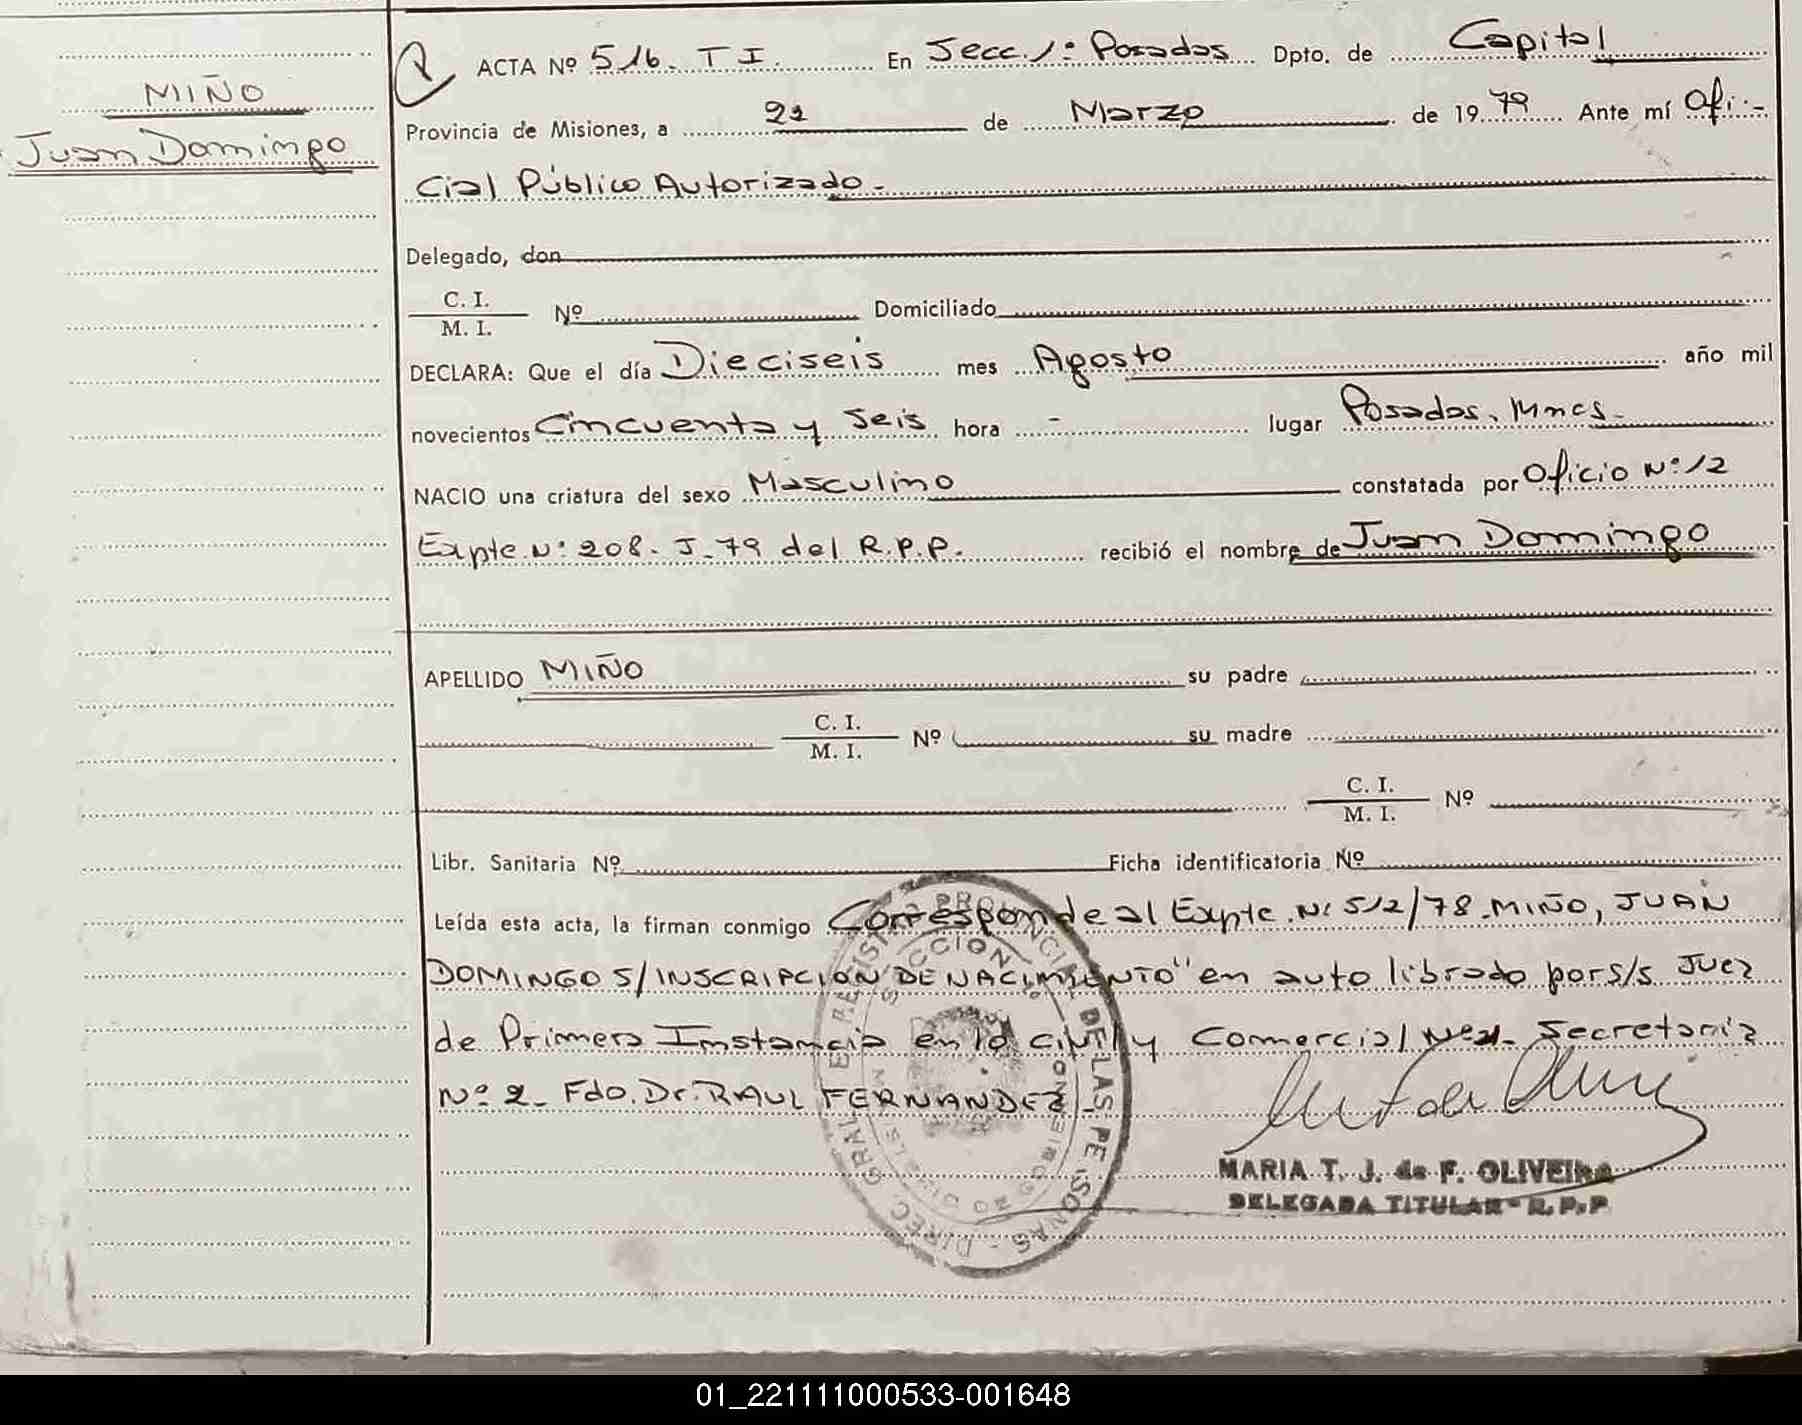 MIÑO
Juan Domingo
ACTA Nº 516. T I. En Secc. 1º Posadas Dpto. de Capital
Provincia de Misiones, a 21 de Marzo de 1979 Ante mí Ofi-
cial Público Autorizado.
Delegado, don
C. I.
M. I. Nº Domiciliado
DECLARA: Que el día Dieciseis mes Agosto año mil
novecientos Cincuenta y Seis hora - lugar Posadas, Mnes.
NACIO una criatura del sexo Masculino constatada por Oficio Nº 12
Expte. Nº 208. J-79 del R.P.P. recibió el nombre de Juan Domingo
APELLIDO MIÑO su padre
C. I.
M. I. Nº su madre
C. I.
M. I. Nº
Libr. Sanitaria Nº Ficha identificatoria Nº
Leída esta acta, la firman conmigo Corresponde al Expte. Nº 512/78. MIÑO, JUAN
DOMINGO S/INSCRIPCIÓN DE NACIMIENTO" en auto librado por s/s Juez
de Primera Instancia en lo civil y Comercial Nº 1. Secretaria
Nº 2. Fdo. Dr. RAUL FERNANDEZ.
MARIA T. J. de F. OLIVEIRA
DELEGADA TITULAR - R.P.P
01_221111000533-001648